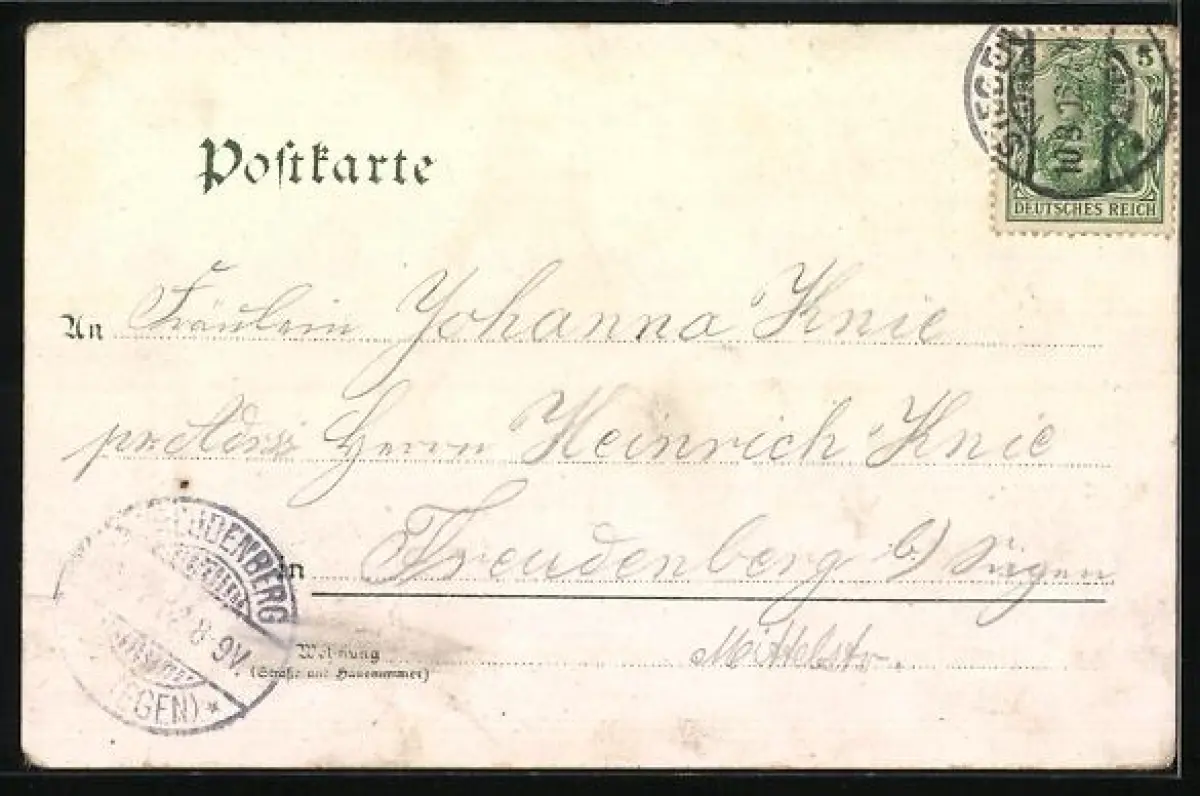 SIEGEN
10 8
5
DEUTSCHES REICH
Postkarte
An Fräulein Johanna Knie
pr. Adrss Herrn Heinrich Knie
in Freudenberg b/ Siegen
Wohnung Mittelstr.
(Straße und Hausnummer)
FREUDENBERG
8-9V
(SIEGEN) *